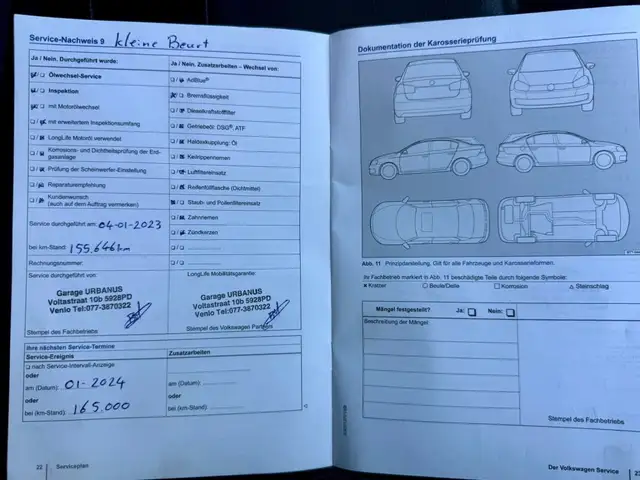 Service-Nachweis 9 kleine Beurt
Ja / Nein, Durchgeführt wurde:
Ölwechsel-Service
Inspektion
mit Motorölwechsel
mit erweitertem Inspektionsumfang
LongLife Motoröl verwendet
Korrosions- und Dichtheitsprüfung der Erd-
gasanlage
Prüfung der Scheinwerfer-Einstellung
Reparaturempfehlung
Kundenwunsch
(auch auf dem Auftrag vermerken)
Service durchgeführt am: 04-01-2023
bei km-Stand: 155.646 km
Rechnungsnummer:
Service durchgeführt von:
Garage URBANUS
Voltastraat 10b 5928PD
Venlo Tel:077-3870322
Stempel des Fachbetriebs
Ja / Nein, Zusatzarbeiten – Wechsel von:
AdBlue®
Bremsflüssigkeit
Dieselkraftstofffilter
Getriebeöl: DSG®, ATF
Haldexkupplung: Öl
Keilrippenriemen
Luftfiltereinsatz
Reifenfüllflasche (Dichtmittel)
Staub- und Pollenfiltereinsatz
Zahnriemen
Zündkerzen
LongLife Mobilitätsgarantie:
Garage URBANUS
Voltastraat 10b 5928PD
Venlo Tel:077-3870322
Stempel des Volkswagen Partners
Ihre nächsten Service-Termine
Service-Ereignis
Zusatzarbeiten
nach Service-Intervall-Anzeige
oder
am (Datum): 01-2024
am (Datum):
oder
oder
bei (km-Stand): 165.000
bei (km-Stand):
22 Serviceplan
Dokumentation der Karosserieprüfung
Abb. 11 Prinzipdarstellung. Gilt für alle Fahrzeuge und Karosserieformen.
Ihr Fachbetrieb markiert in Abb. 11 beschädigte Teile durch folgende Symbole:
× Kratzer ○ Beule/Delle □ Korrosion △ Steinschlag
Mängel festgestellt? Ja: Nein:
Beschreibung der Mängel:
Stempel des Fachbetriebs
Der Volkswagen Service 23